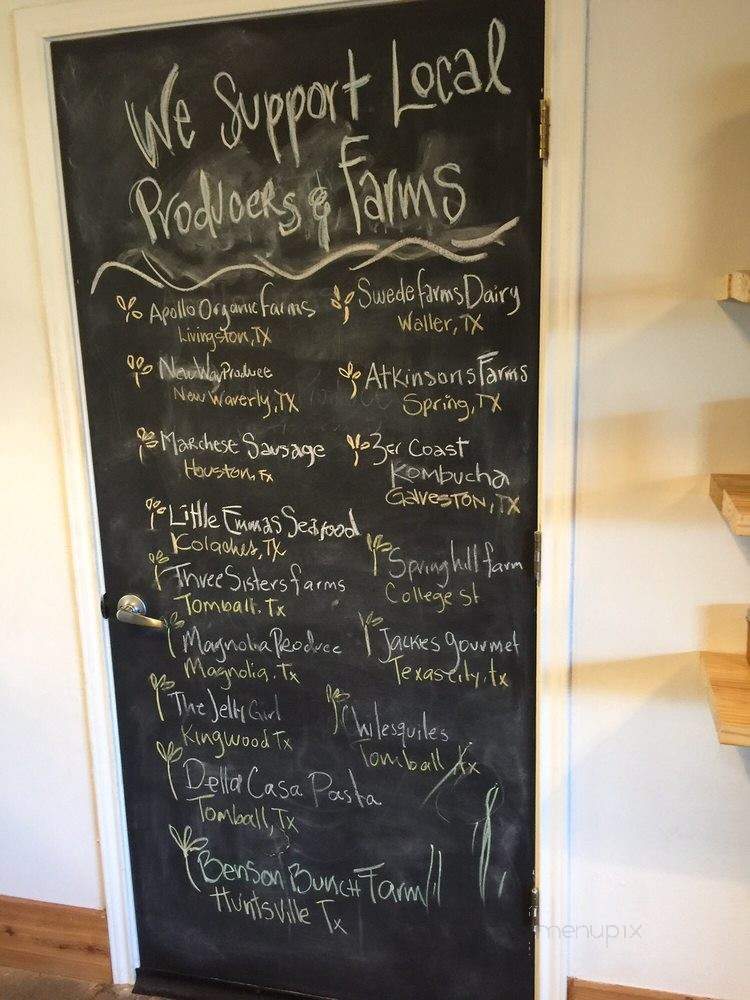 We Support Local
Producers & Farms
Apollo Organic Farms
Livingston, TX
Swede farms Dairy
Waller, TX
New Way Produce
New Waverly, TX
Atkinsons Farms
Spring, TX
Marchese Sausage
Houston, TX
3er Coast
Kombucha
Galveston, TX
Little Emmas Seafood
Kolaches, TX
Springhill farm
College st
Three Sisters farms
Tomball, Tx
Magnolia Produce
Magnolia, Tx
Jackies gourmet
Texas city, tx
The Jelly Girl
Kingwood Tx
Chilesquiles
Tomball Tx
Della Casa Pasta
Tomball, Tx
Benson Bunch Farm
Huntsville Tx
menupix